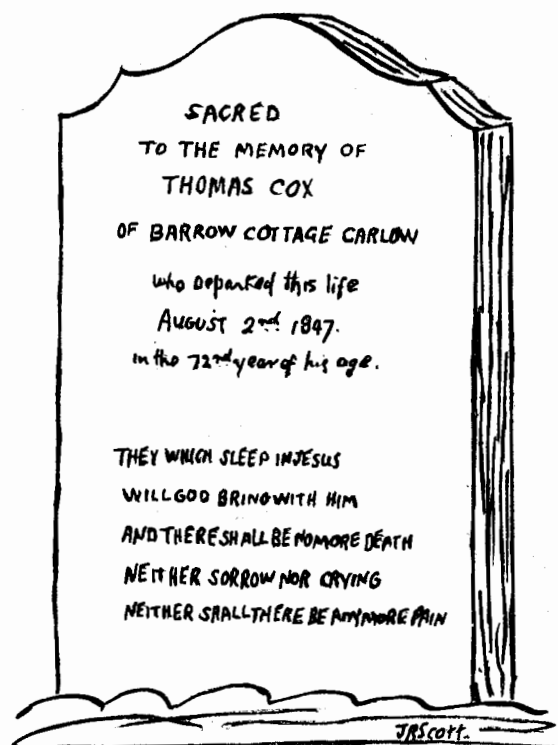 SACRED
TO THE MEMORY OF
THOMAS COX
OF BARROW COTTAGE CARLOW
who Departed this life
AUGUST 2nd 1847.
in the 72nd year of his age.
THEY WHICH SLEEP IN JESUS
WILL GOD BRING WITH HIM
AND THERE SHALL BE NO MORE DEATH
NEITHER SORROW NOR CRYING
NEITHER SHALL THERE BE ANY MORE PAIN
JRScott.